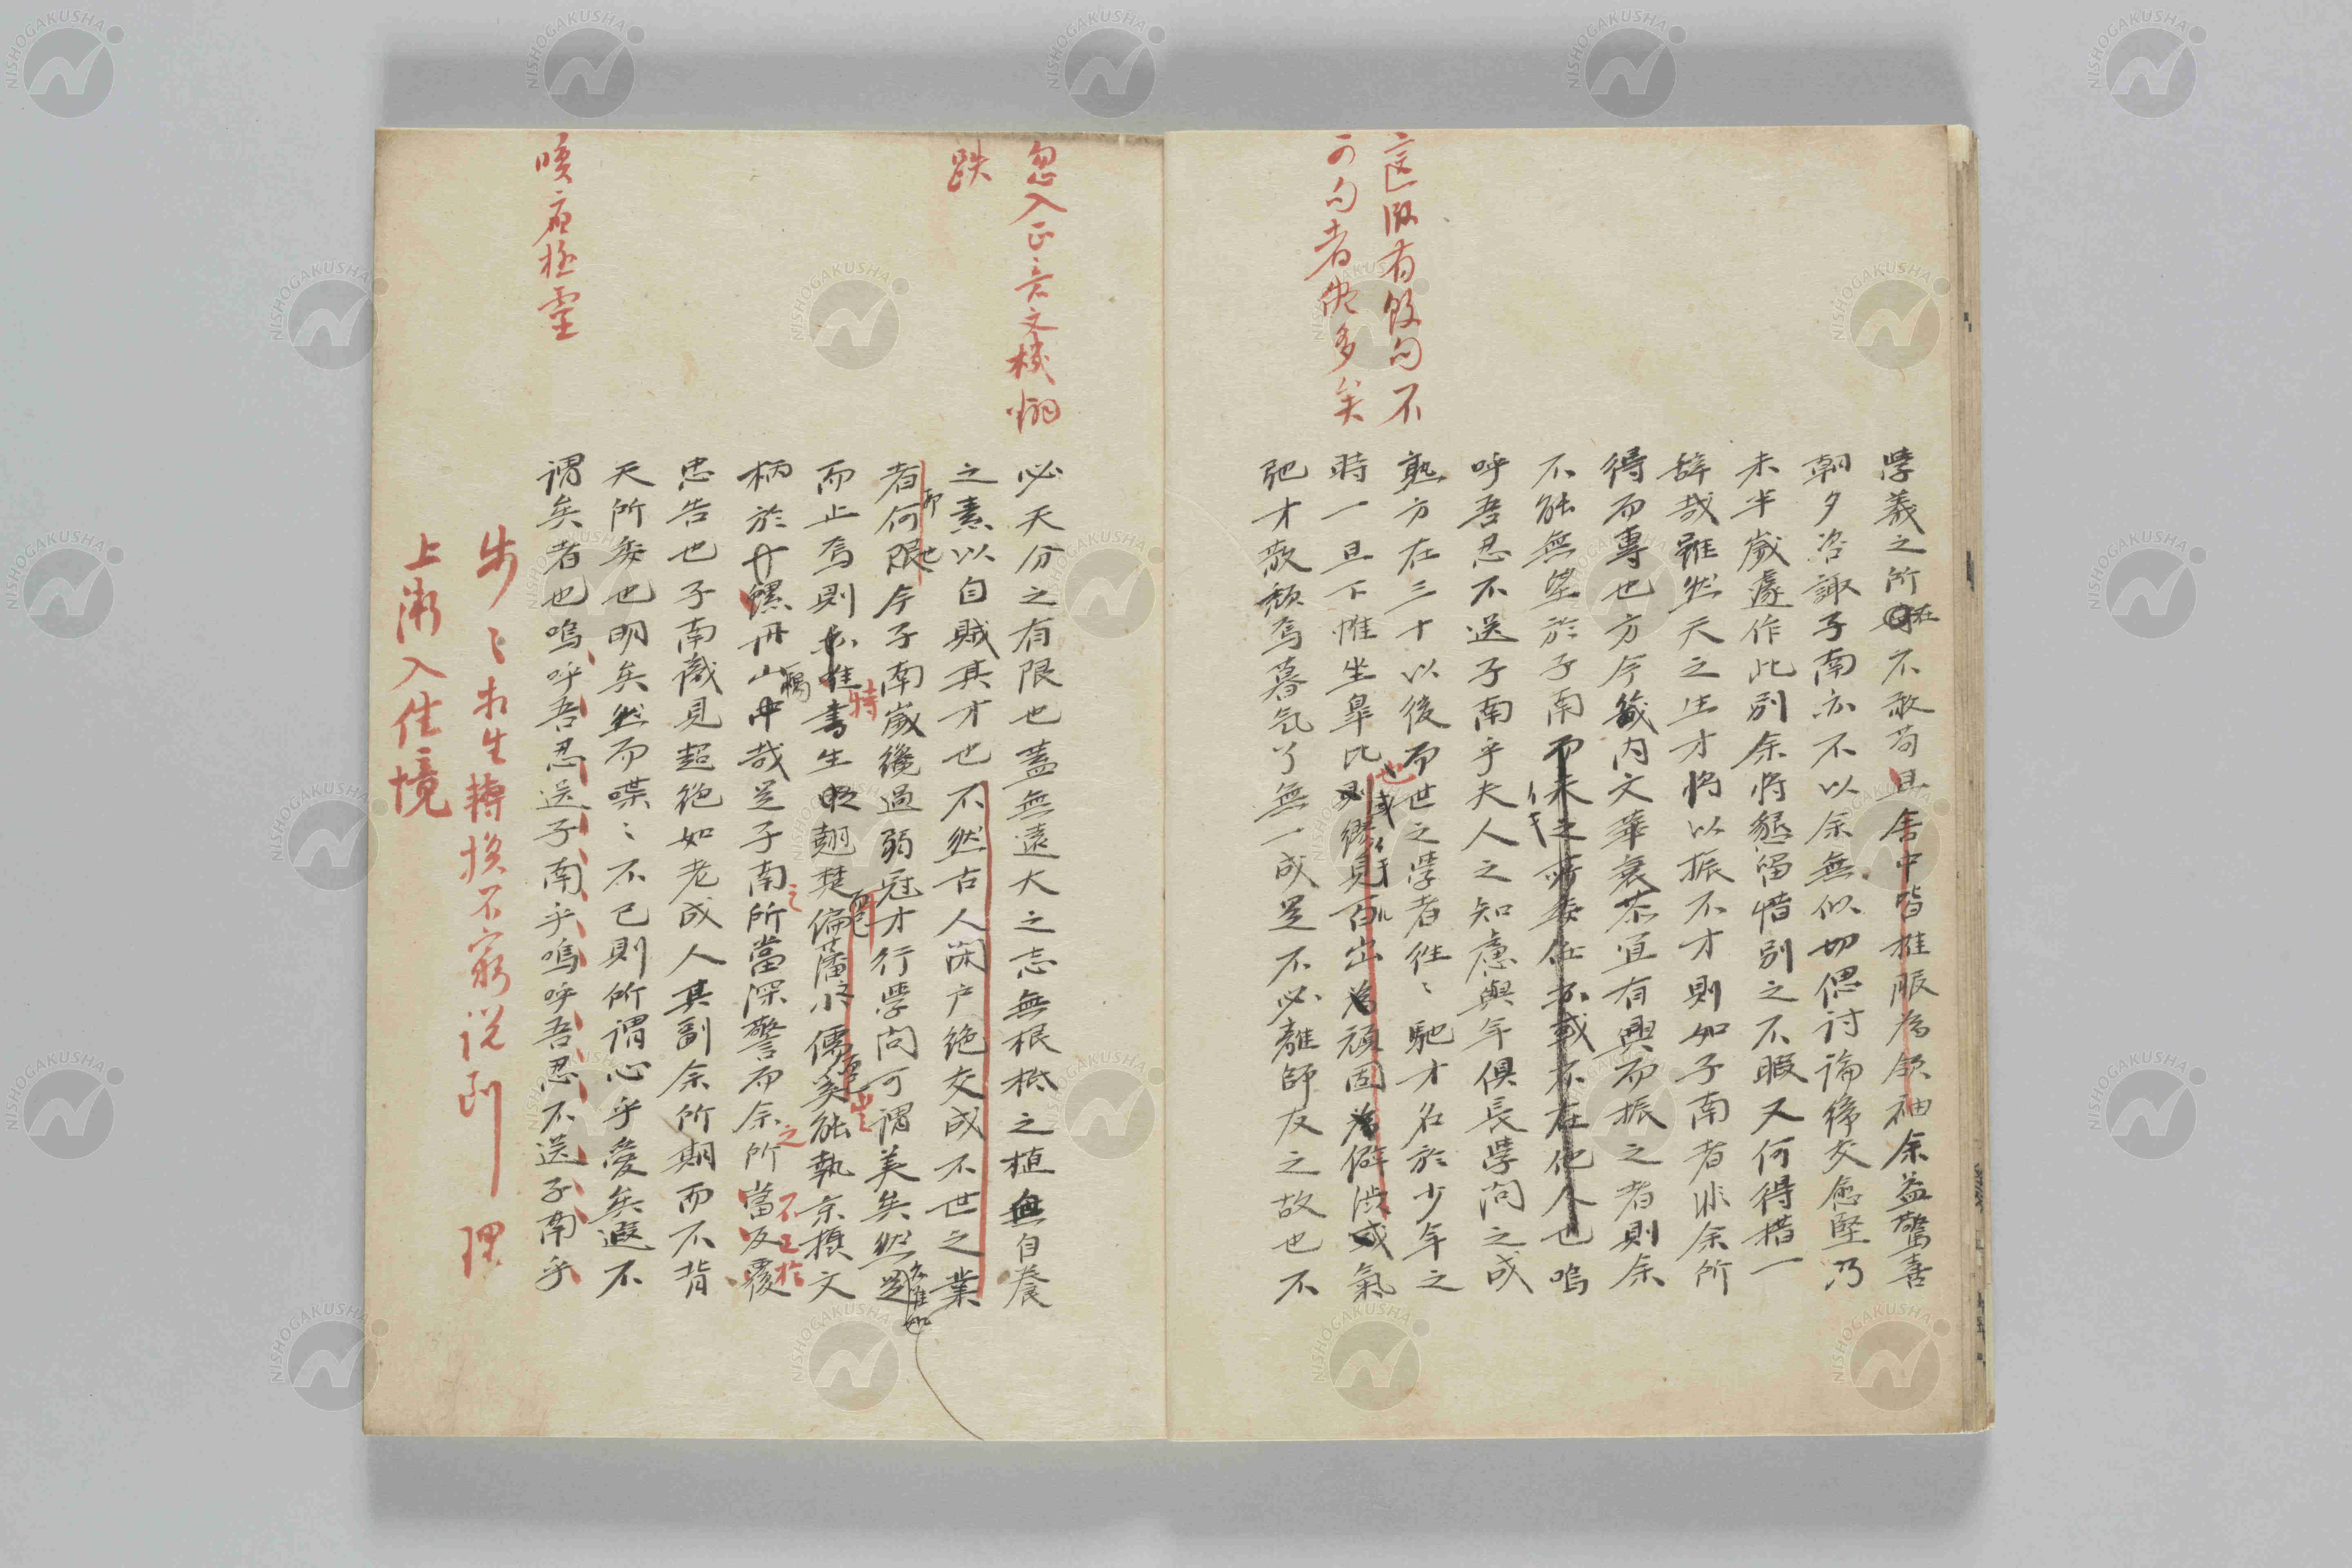 學義之所在不敢苟且舎中皆推服為領袖余益驚喜
朝夕咨諏子南亦不以余無似切偲討論締交愈堅乃
未半歲遽作此別余將懇留惜別之不暇又何得措一
辞哉雖然天之生才將以振不才則如子南者非余所
得而專也方今畿内文華衰苶宜有興而振之者則余
不能無望於子南而天之所委任亦載不在他人也嗚
呼吾忍不送子南乎夫人之知慮與年俱長學問之成
熟方在三十以後而世之學者徃〻馳才名於少年之
時一旦下帷坐皐比則繆見百出為頑固為僻澁或氣
弛才散頽焉暮氣了無一成是不必離師友之故也不
這服有餘句不
可句者供多矣
必天分之有限也蓋無遠大之志無根柢之植無自養
之素以自賊其才也不然古人閉户絶交成不世之業
者何限今子南歲纔過弱冠才行學問可謂美矣然
而止焉則亦唯書生中翹楚偏藩小儒奚能執京摂文
柄於丹螺丹山中哉是子南所當深警而余所當反覆
忠告也子南識見超絶如老成人其副余所期而不背
天所委也明矣然而喋〻不已則所謂心乎愛矣遐不
謂矣者也嗚呼吾忍送子南乎嗚呼吾忍不送子南乎
忽入正意文機
跌
咳應極靈
步〻相生轉換不窮説到理
上漸入佳境